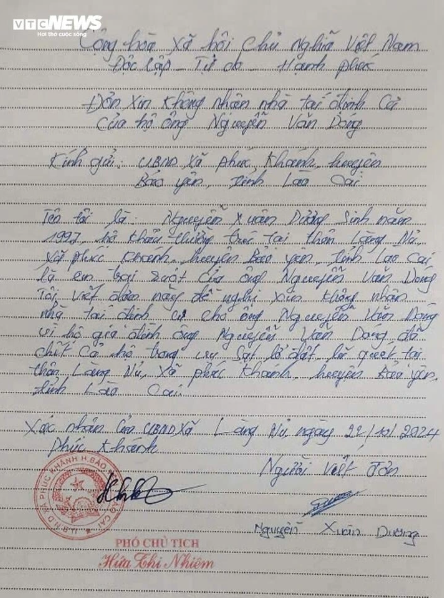 VTC NEWS
Hơi thở cuộc sống
Cộng hòa xã hội Chủ Nghĩa Việt Nam
Độc lập - Tự do Hạnh phúc
Đơn Xin không nhận nhà tái định cư
của hộ ông Nguyễn Văn Dong
Kính gửi: UBND Xã Phúc Khánh, huyện
Bảo Yên, Tỉnh Lào Cai
Tên tôi là Nguyễn Xuân Dương Sinh năm
1997 hộ khẩu thường trú tại thôn Làng Nủ
Xã phúc Khánh, huyện Bảo yên, Tỉnh Lao Cai
là em trai ruột của ông Nguyễn Văn Dong
Tôi viết đơn này đề nghị xin không nhận
nhà tái định cư cho ông Nguyễn Văn Dong
vì hộ gia đình ông Nguyễn Văn Dong đã
chết cả hộ trong vụ sạt lở đất, lũ quét tại
thôn Làng Nủ, xã phúc Khánh, huyện Bảo yên,
tỉnh Lào Cai.
Xác nhận của UBND xã Làng Nủ, ngày 22/10/2024
Phúc Khánh Người Viết Đơn
PHÓ CHỦ TỊCH
Hứa Thị Nhiệm
Nguyễn Xuân Dương